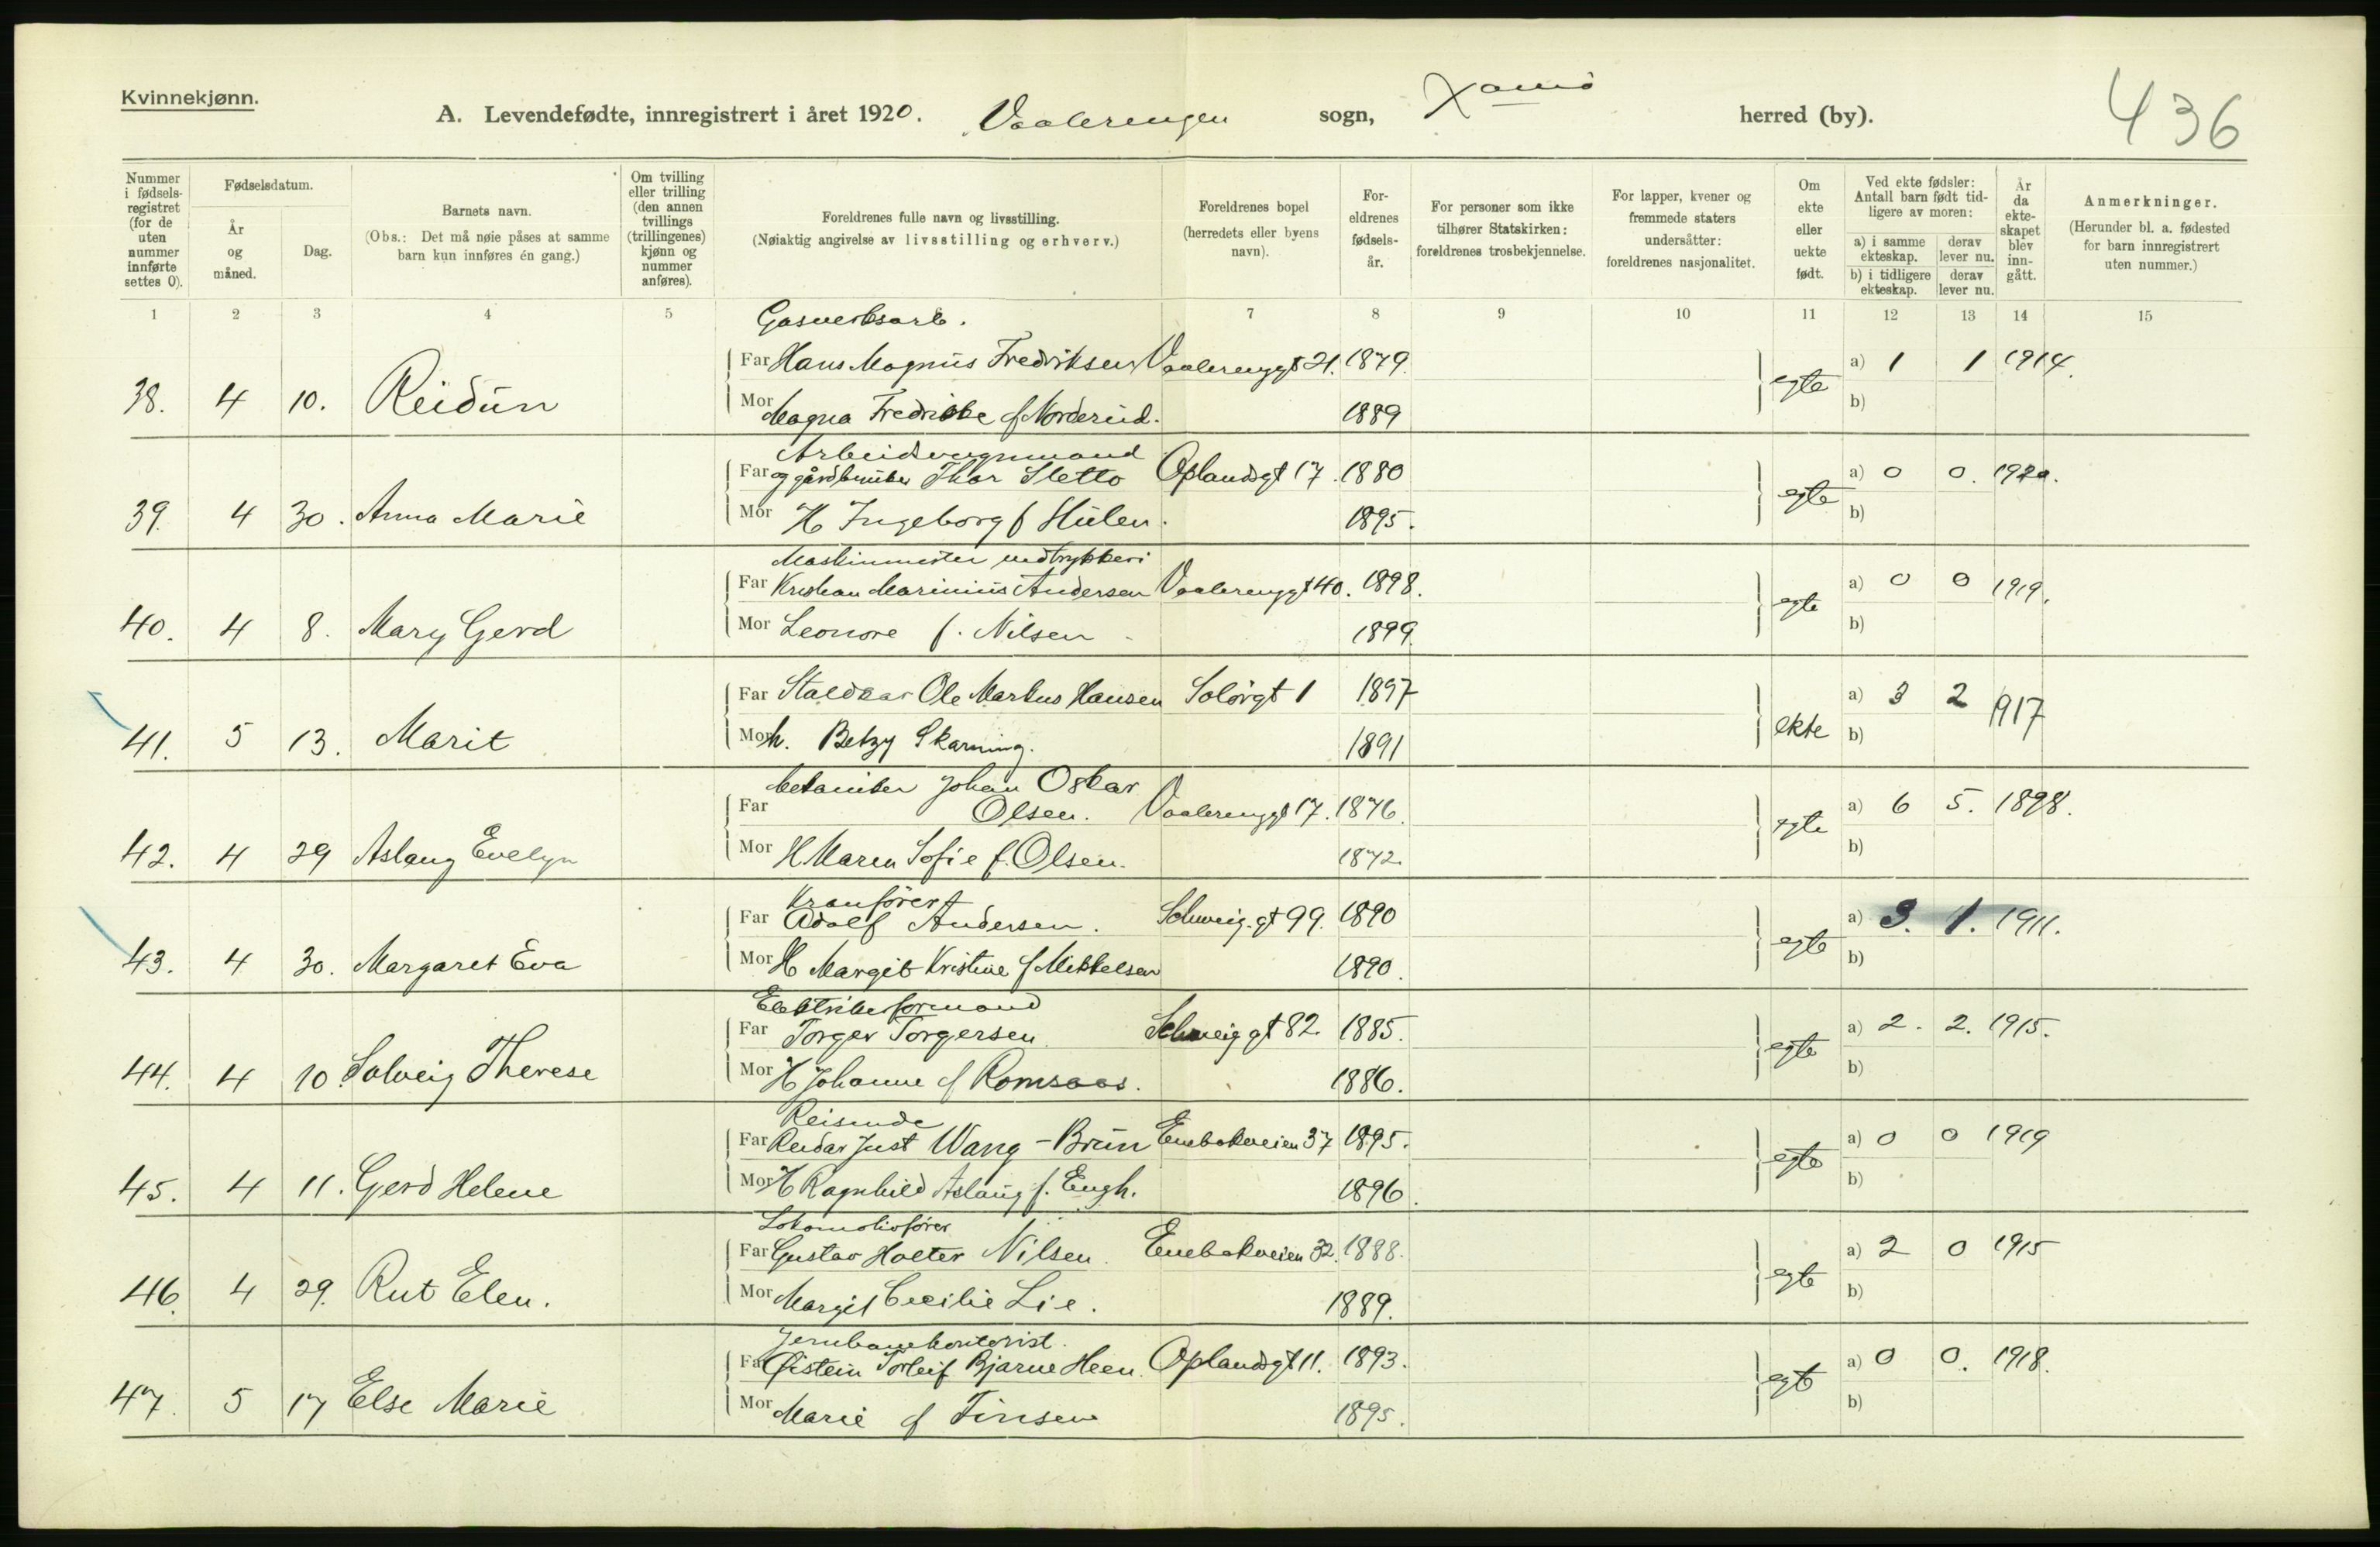 Kvinnekjønn.
A. Levendefødte, innregistrert i året 1920. Vaalerengen sogn, Xania herred (by). 436
Nummer i fødsels-registret (for de uten nummer innførte settes 0).
Fødselsdatum.
År og måned.
Dag.
Barnets navn.
(Obs.: Det må nøie påses at samme barn kun innføres én gang.)
Om tvilling eller trilling (den annen tvillings (trillingenes) kjønn og nummer anføres).
Foreldrenes fulle navn og livsstilling.
(Nøiaktig angivelse av livsstilling og erhverv.)
Foreldrenes bopel (herredets eller byens navn).
For-eldrenes fødsels-år.
For personer som ikke tilhører Statskirken: foreldrenes trosbekjennelse.
For lapper, kvener og fremmede staters undersåtter: foreldrenes nasjonalitet.
Om ekte eller uekte født.
Ved ekte fødsler: Antall barn født tid-ligere av moren:
a) i samme ekteskap. derav lever nu.
b) i tidligere ekteskap. derav lever nu.
År da ekte-skapet blev inn-gått.
Anmerkninger.
(Herunder bl. a. fødested for barn innregistrert uten nummer.)
1 2 3 4 5 7 8 9 10 11 12 13 14 15
Gasverksarb.
Far Hans Magnus Fredriksen Vaalerenggt 21. 1879. a) 1 1 1914.
38. 4 10. Reidun egte b)
Mor Magna Fredrikke f Norderud. 1889
Arbeidsvognmand
Far og gårdbruker Thor Sletto Oplandsgt 17. 1880 a) 0 0. 1920.
39. 4 30. Anna Marie egte b)
Mor H Ingeborg f Hulen. 1895.
Maskinmester ved trykkeri
Far Kristian Marinius Andersen Vaalerenggt 40. 1898. a) 0 0 1919.
40. 4 8. Mary Gerd egte b)
Mor Leonore f. Nilsen 1899.
Far Staldkar Ole Markus Hansen Solørgt 1 1897 a) 3 2 1917
41. 5 13. Marit ekte b)
Mor h. Betzy Skarning. 1891
Mekaniker Johan Oskar
Far Olsen. Vaalerenggt 17. 1876. a) 6 5. 1898.
42. 4 29 Aslaug Evelyn egte b)
Mor H Maren Sofie f. Olsen. 1872.
Kranfører
Far Adolf Andersen. Schweig. gt 99. 1890 a) 3. 1. 1911.
43. 4 30. Margaret Eva egte b)
Mor H Margit Kristine f Mikkelsen 1890.
Elektrikerformand
Far Torger Torgersen. Schweig gt 82. 1885. a) 2. 2. 1915.
44. 4 10. Solveig Therese egte b)
Mor H Johanne f Romsaas. 1886.
Reisende
Far Reidar Just Wang-Brun Enebakveien 37 1895. a) 0 0 1919
45. 4 11. Gerd Helene egte b)
Mor H Ragnhild Aslaug f. Engh. 1896.
Lokomotivfører
Far Gustav Holter Nilsen. Enebakveien 32. 1888. a) 2 0 1915
46. 4 29. Rut Elen. egte b)
Mor Margit Cecilie Lie. 1889.
Jernbanekontorist.
Far Øistein Torleif Bjarne Heen. Oplandsgt 11. 1893. a) 0 0. 1918.
47. 5 17 Else Marie egte b)
Mor Marie f Finsen 1895.